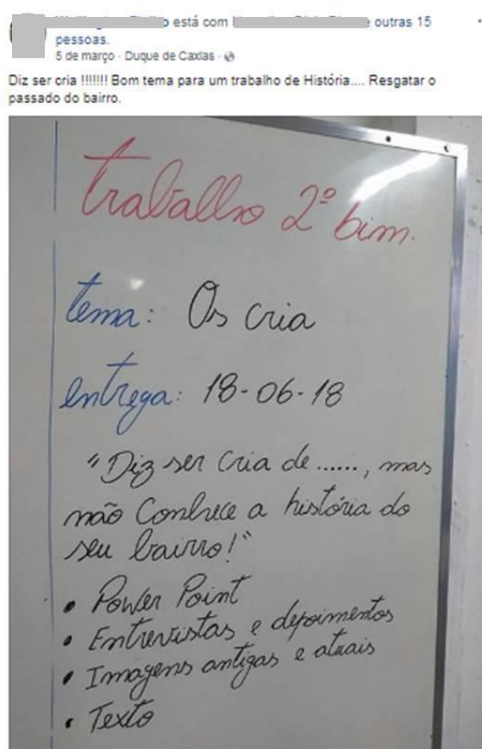 está com e outras 15
pessoas.
5 de março · Duque de Caxias ·
Diz ser cria !!!!!!! Bom tema para um trabalho de História.... Resgatar o
passado do bairro.
trabalho 2º bim.
tema: Os cria
entrega: 18-06-18
"Diz ser cria de ......, mas
não Conhece a história do
seu bairro!"
• Power Point
• Entrevistas e depoimentos
• Imagens antigas e atuais
• Texto